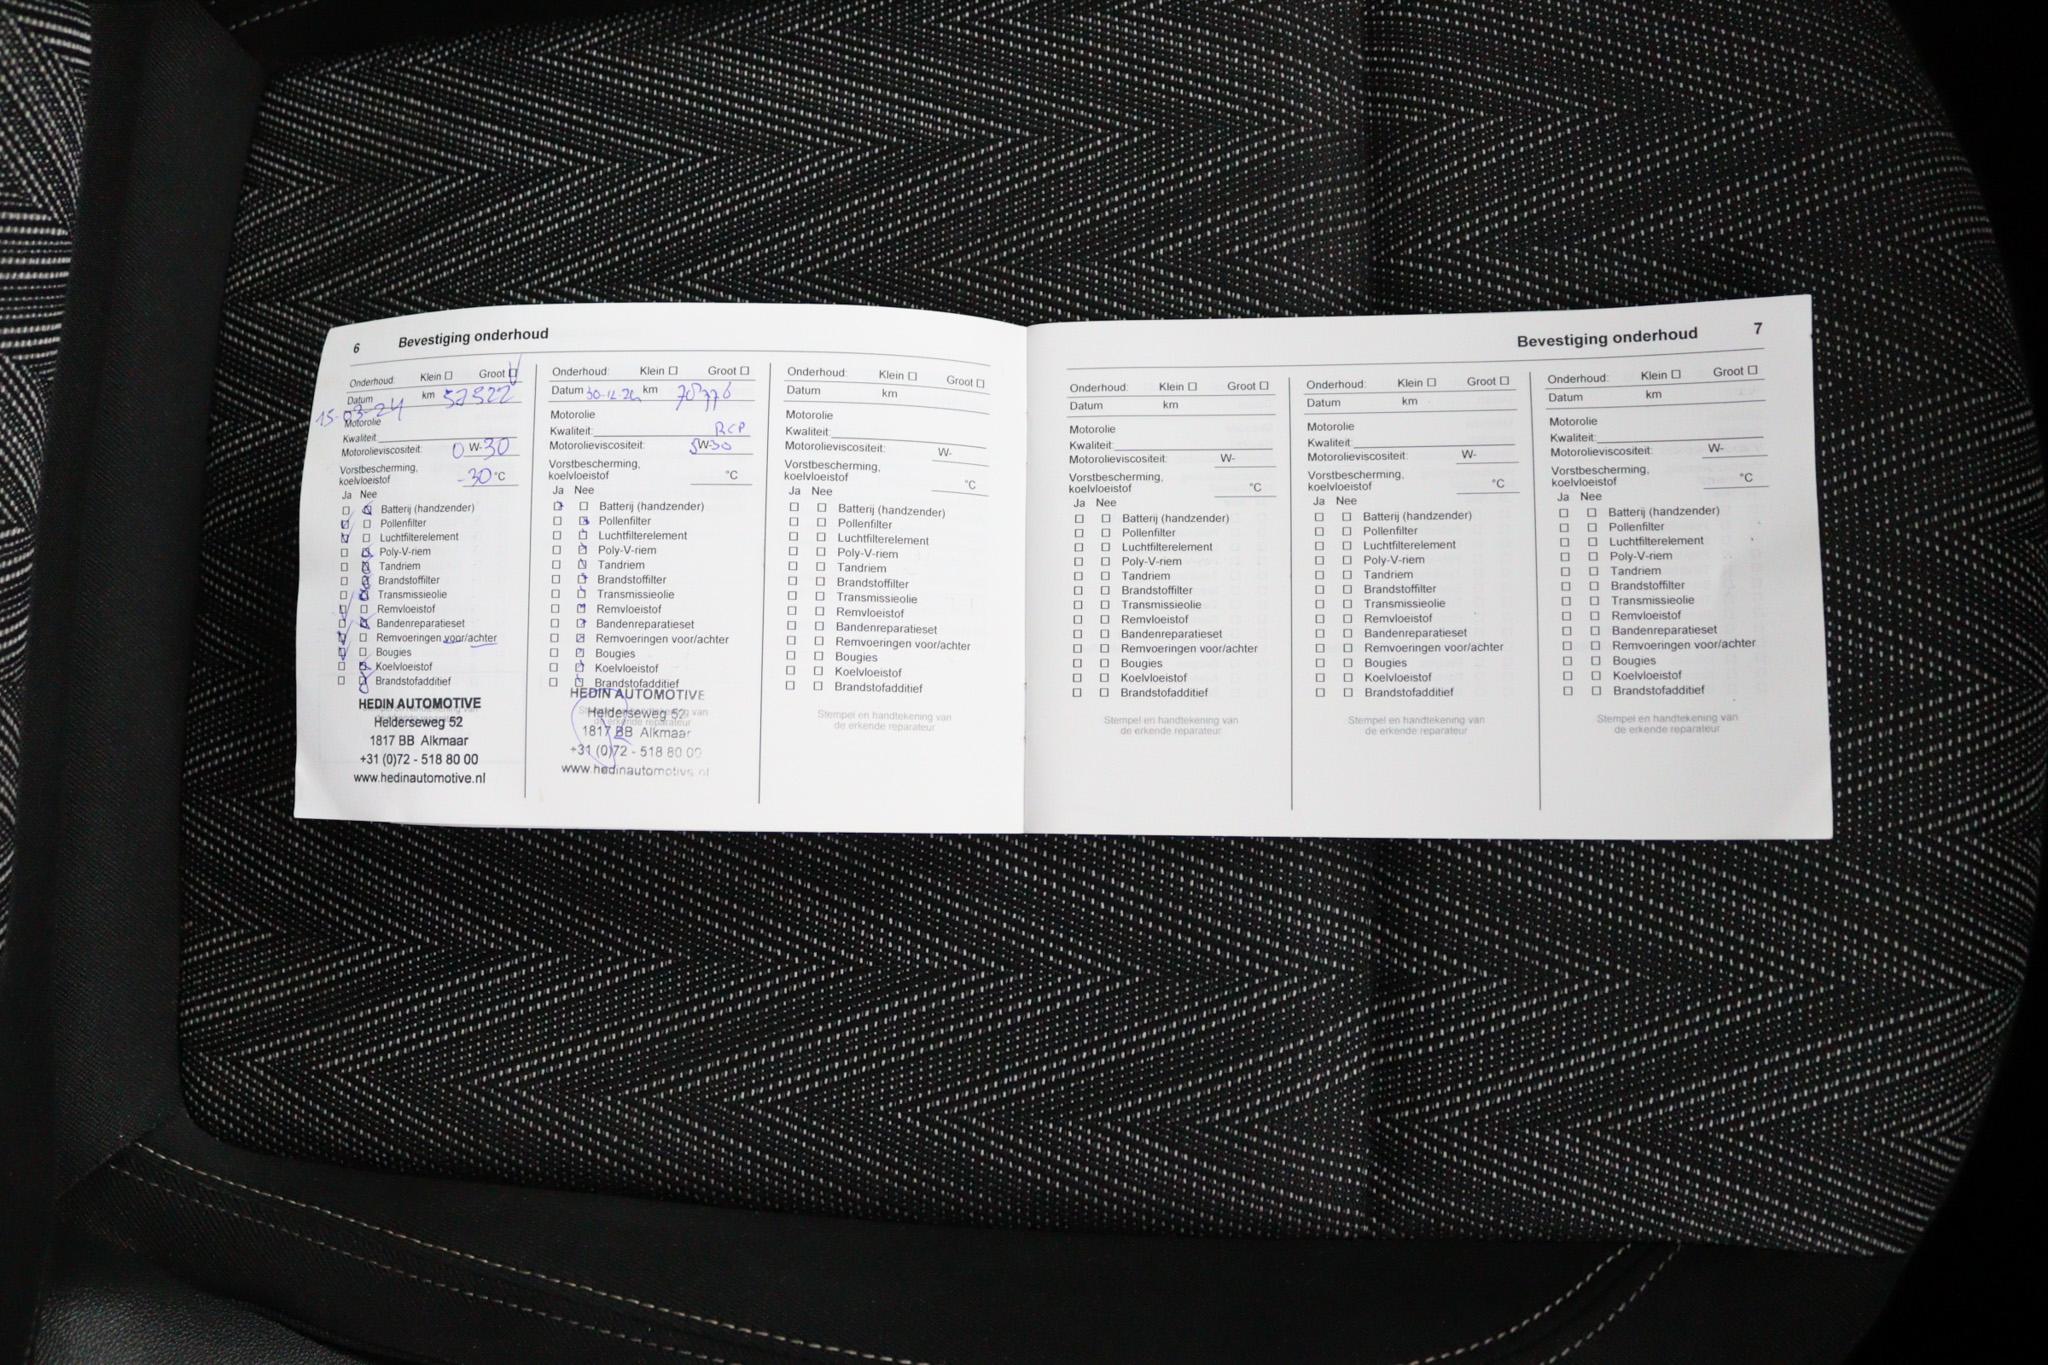 6 Bevestiging onderhoud
Onderhoud: Klein ☐ Groot ☑
Datum 15-03-24 km 52522
Motorolie
Kwaliteit:
Motorolieviscositeit: 0 W-30
Vorstbescherming,
koelvloeistof -30 °C
Ja Nee
Batterij (handzender)
Pollenfilter
Luchtfilterelement
Poly-V-riem
Tandriem
Brandstoffilter
Transmissieolie
Remvloeistof
Bandenreparatieset
Remvoeringen voor/achter
Bougies
Koelvloeistof
Brandstofadditief
HEDIN AUTOMOTIVE
Helderseweg 52
1817 BB Alkmaar
+31 (0)72 - 518 80 00
www.hedinautomotive.nl
Onderhoud: Klein ☐ Groot ☐
Datum 30-12-24 km
Motorolie
Kwaliteit: RCP
Motorolieviscositeit: 5W-30
Vorstbescherming,
koelvloeistof °C
Ja Nee
Batterij (handzender)
Pollenfilter
Luchtfilterelement
Poly-V-riem
Tandriem
Brandstoffilter
Transmissieolie
Remvloeistof
Bandenreparatieset
Remvoeringen voor/achter
Bougies
Koelvloeistof
Brandstofadditief
HEDIN AUTOMOTIVE
Stempel en handtekening van
Helderseweg 52
de erkende reparateur
1817 BB Alkmaar
+31 (0)72 - 518 80 00
www.hedinautomotive.nl
Onderhoud: Klein ☐ Groot ☐
Datum km
Motorolie
Kwaliteit:
Motorolieviscositeit: W-
Vorstbescherming,
koelvloeistof °C
Ja Nee
Batterij (handzender)
Pollenfilter
Luchtfilterelement
Poly-V-riem
Tandriem
Brandstoffilter
Transmissieolie
Remvloeistof
Bandenreparatieset
Remvoeringen voor/achter
Bougies
Koelvloeistof
Brandstofadditief
Stempel en handtekening van
de erkende reparateur
Bevestiging onderhoud 7
Onderhoud: Klein ☐ Groot ☐
Datum km
Motorolie
Kwaliteit:
Motorolieviscositeit: W-
Vorstbescherming,
koelvloeistof °C
Ja Nee
Batterij (handzender)
Pollenfilter
Luchtfilterelement
Poly-V-riem
Tandriem
Brandstoffilter
Transmissieolie
Remvloeistof
Bandenreparatieset
Remvoeringen voor/achter
Bougies
Koelvloeistof
Brandstofadditief
Stempel en handtekening van
de erkende reparateur
Onderhoud: Klein ☐ Groot ☐
Datum km
Motorolie
Kwaliteit:
Motorolieviscositeit: W-
Vorstbescherming,
koelvloeistof °C
Ja Nee
Batterij (handzender)
Pollenfilter
Luchtfilterelement
Poly-V-riem
Tandriem
Brandstoffilter
Transmissieolie
Remvloeistof
Bandenreparatieset
Remvoeringen voor/achter
Bougies
Koelvloeistof
Brandstofadditief
Stempel en handtekening van
de erkende reparateur
Onderhoud: Klein ☐ Groot ☐
Datum km
Motorolie
Kwaliteit:
Motorolieviscositeit: W-
Vorstbescherming,
koelvloeistof °C
Ja Nee
Batterij (handzender)
Pollenfilter
Luchtfilterelement
Poly-V-riem
Tandriem
Brandstoffilter
Transmissieolie
Remvloeistof
Bandenreparatieset
Remvoeringen voor/achter
Bougies
Koelvloeistof
Brandstofadditief
Stempel en handtekening van
de erkende reparateur